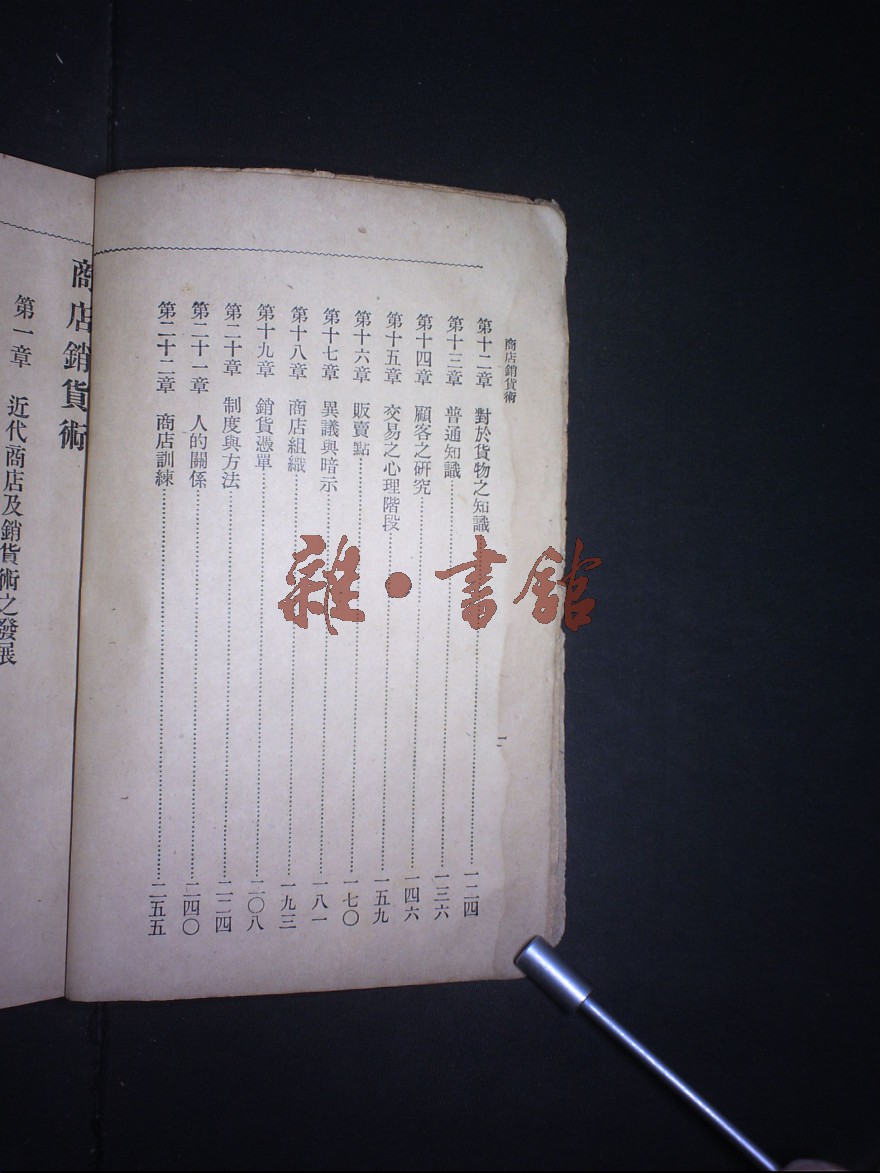 商店銷貨術
第十二章 對於貨物之知識……一二四
第十三章 普通知識……一三六
第十四章 顧客之研究……一四六
第十五章 交易之心理階段……一五九
第十六章 販賣點……一七〇
第十七章 異議與暗示……一八一
第十八章 商店組織……一九三
第十九章 銷貨憑單……二〇八
第二十章 制度與方法……二二四
第二十一章 人的關係……二四〇
第二十二章 商店訓練……二五五
商店銷貨術
第一章 近代商店及銷貨術之發展
雜·書館